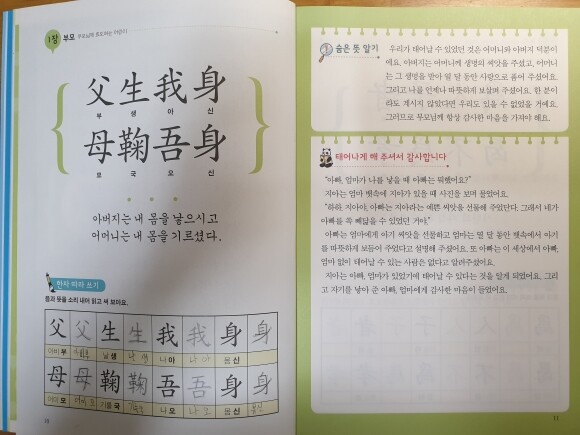 1장 부모 부모님께 효도하는 어린이
父生我身
부 생 아 신
母鞠吾身
모 국 오 신
아버지는 내 몸을 낳으시고
어머니는 내 몸을 기르셨다.
한자 따라 쓰기
음과 뜻을 소리 내어 읽고 써 보아요.
父 父 生 生 我 我 身 身
아비 부 날 생 나 아 몸 신
母 母 鞠 鞠 吾 吾 身 身
어미 모 기를 국 나 오 몸 신
10
숨은 뜻 알기
우리가 태어날 수 있었던 것은 어머니와 아버지 덕분이
에요. 아버지는 어머니께 생명의 씨앗을 주셨고, 어머니
는 그 생명을 받아 열 달 동안 사랑으로 품어 주셨어요.
그리고 나를 언제나 따뜻하게 보살펴 주셨어요. 한 분이
라도 계시지 않았다면 우리도 있을 수 없었을 거예요.
그러므로 부모님께 항상 감사한 마음을 가져야 해요.
태어나게 해 주셔서 감사합니다
“아빠, 엄마가 나를 낳을 때 아빠는 뭐했어요?”
지아는 엄마 뱃속에 지아가 있을 때 사진을 보며 물었어요.
“하하, 지아야, 아빠는 지아라는 예쁜 씨앗을 선물해 주었단다. 그래서 네가
아빠를 쏙 빼닮을 수 있었던 거야.”
아빠는 엄마에게 아기 씨앗을 선물하고 엄마는 열 달 동안 뱃속에서 아기
를 따뜻하게 보듬어 주었다고 설명해 주셨어요. 또 아빠는 이 세상에서 아빠,
엄마 없이 태어날 수 있는 사람은 없다고 알려주셨어요.
지아는 아빠, 엄마가 있었기에 태어날 수 있다는 것을 알게 되었어요. 그리
고 자기를 낳아 준 아빠, 엄마에게 감사한 마음이 들었어요.
11